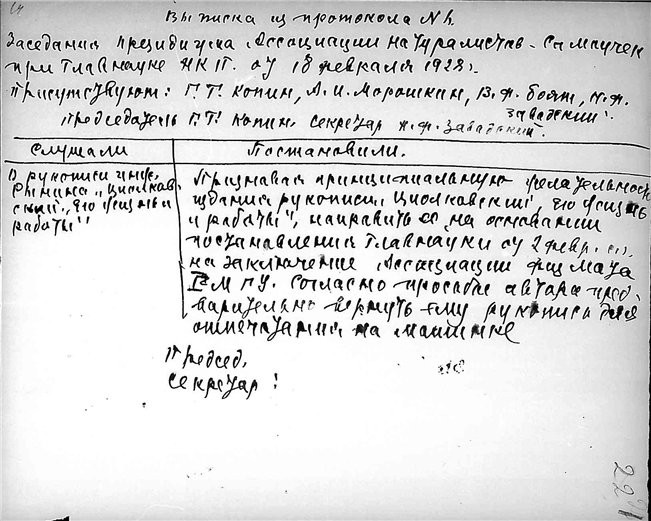 Выписка из протокола N h.
Заседания президиума Ассоциации натуралистов - самоучек
при Главнауке НКП. от 18 февраля 1928 г.
Присутствуют: Г. Т. Копин, А. И. Морошкин, В. Ф. Боят, Н. Ф. Завадский.
Председатель Г. Т. Копин. секретар Н. Ф. Завадский.
Слушали
Постановили.
О рукописи инж.
Рынина "Циолков-
ский, его жизнь и
работы"
Признавая принципиальную желательность
издания рукописи "Циолковский, его жизнь
и работы", направить ее на основании
постановления Главнауки от 2 февр. с.г.
на заключение Ассоциации физмата
I МГУ. Согласно просьбе автора пред-
варительно вернуть ему рукопись для
отпечатания на машинке
Председ.
Секретар:
22